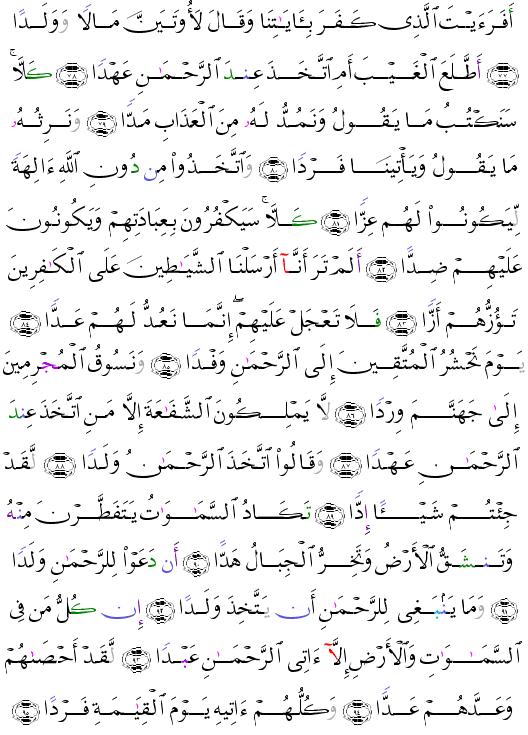 أَفَرَءَيْتَ ٱلَّذِى كَفَرَ بِـَٔايَٰتِنَا وَقَالَ لَأُوتَيَنَّ مَالًا وَوَلَدًا
﴿٧٧﴾ أَطَّلَعَ ٱلْغَيْبَ أَمِ ٱتَّخَذَ عِندَ ٱلرَّحْمَٰنِ عَهْدًا ﴿٧٨﴾ كَلَّا ۚ
سَنَكْتُبُ مَا يَقُولُ وَنَمُدُّ لَهُۥ مِنَ ٱلْعَذَابِ مَدًّا ﴿٧٩﴾ وَنَرِثُهُۥ
مَا يَقُولُ وَيَأْتِينَا فَرْدًا ﴿٨٠﴾ وَٱتَّخَذُوا۟ مِن دُونِ ٱللَّهِ ءَالِهَةً
لِّيَكُونُوا۟ لَهُمْ عِزًّا ﴿٨١﴾ كَلَّا ۚ سَيَكْفُرُونَ بِعِبَادَتِهِمْ وَيَكُونُونَ
عَلَيْهِمْ ضِدًّا ﴿٨٢﴾ أَلَمْ تَرَ أَنَّآ أَرْسَلْنَا ٱلشَّيَٰطِينَ عَلَى ٱلْكَٰفِرِينَ
تَؤُزُّهُمْ أَزًّا ﴿٨٣﴾ فَلَا تَعْجَلْ عَلَيْهِمْ ۖ إِنَّمَا نَعُدُّ لَهُمْ عَدًّا ﴿٨٤﴾
يَوْمَ نَحْشُرُ ٱلْمُتَّقِينَ إِلَى ٱلرَّحْمَٰنِ وَفْدًا ﴿٨٥﴾ وَنَسُوقُ ٱلْمُجْرِمِينَ
إِلَىٰ جَهَنَّمَ وِرْدًا ﴿٨٦﴾ لَّا يَمْلِكُونَ ٱلشَّفَٰعَةَ إِلَّا مَنِ ٱتَّخَذَ عِندَ
ٱلرَّحْمَٰنِ عَهْدًا ﴿٨٧﴾ وَقَالُوا۟ ٱتَّخَذَ ٱلرَّحْمَٰنُ وَلَدًا ﴿٨٨﴾ لَّقَدْ
جِئْتُمْ شَيْـًٔا إِدًّا ﴿٨٩﴾ تَكَادُ ٱلسَّمَٰوَٰتُ يَتَفَطَّرْنَ مِنْهُ
وَتَنشَقُّ ٱلْأَرْضُ وَتَخِرُّ ٱلْجِبَالُ هَدًّا ﴿٩٠﴾ أَن دَعَوْا۟ لِلرَّحْمَٰنِ وَلَدًا
﴿٩١﴾ وَمَا يَنۢبَغِى لِلرَّحْمَٰنِ أَن يَتَّخِذَ وَلَدًا ﴿٩٢﴾ إِن كُلُّ مَن فِى
ٱلسَّمَٰوَٰتِ وَٱلْأَرْضِ إِلَّآ ءَاتِى ٱلرَّحْمَٰنِ عَبْدًا ﴿٩٣﴾ لَّقَدْ أَحْصَىٰهُمْ
وَعَدَّهُمْ عَدًّا ﴿٩٤﴾ وَكُلُّهُمْ ءَاتِيهِ يَوْمَ ٱلْقِيَٰمَةِ فَرْدًا ﴿٩٥﴾